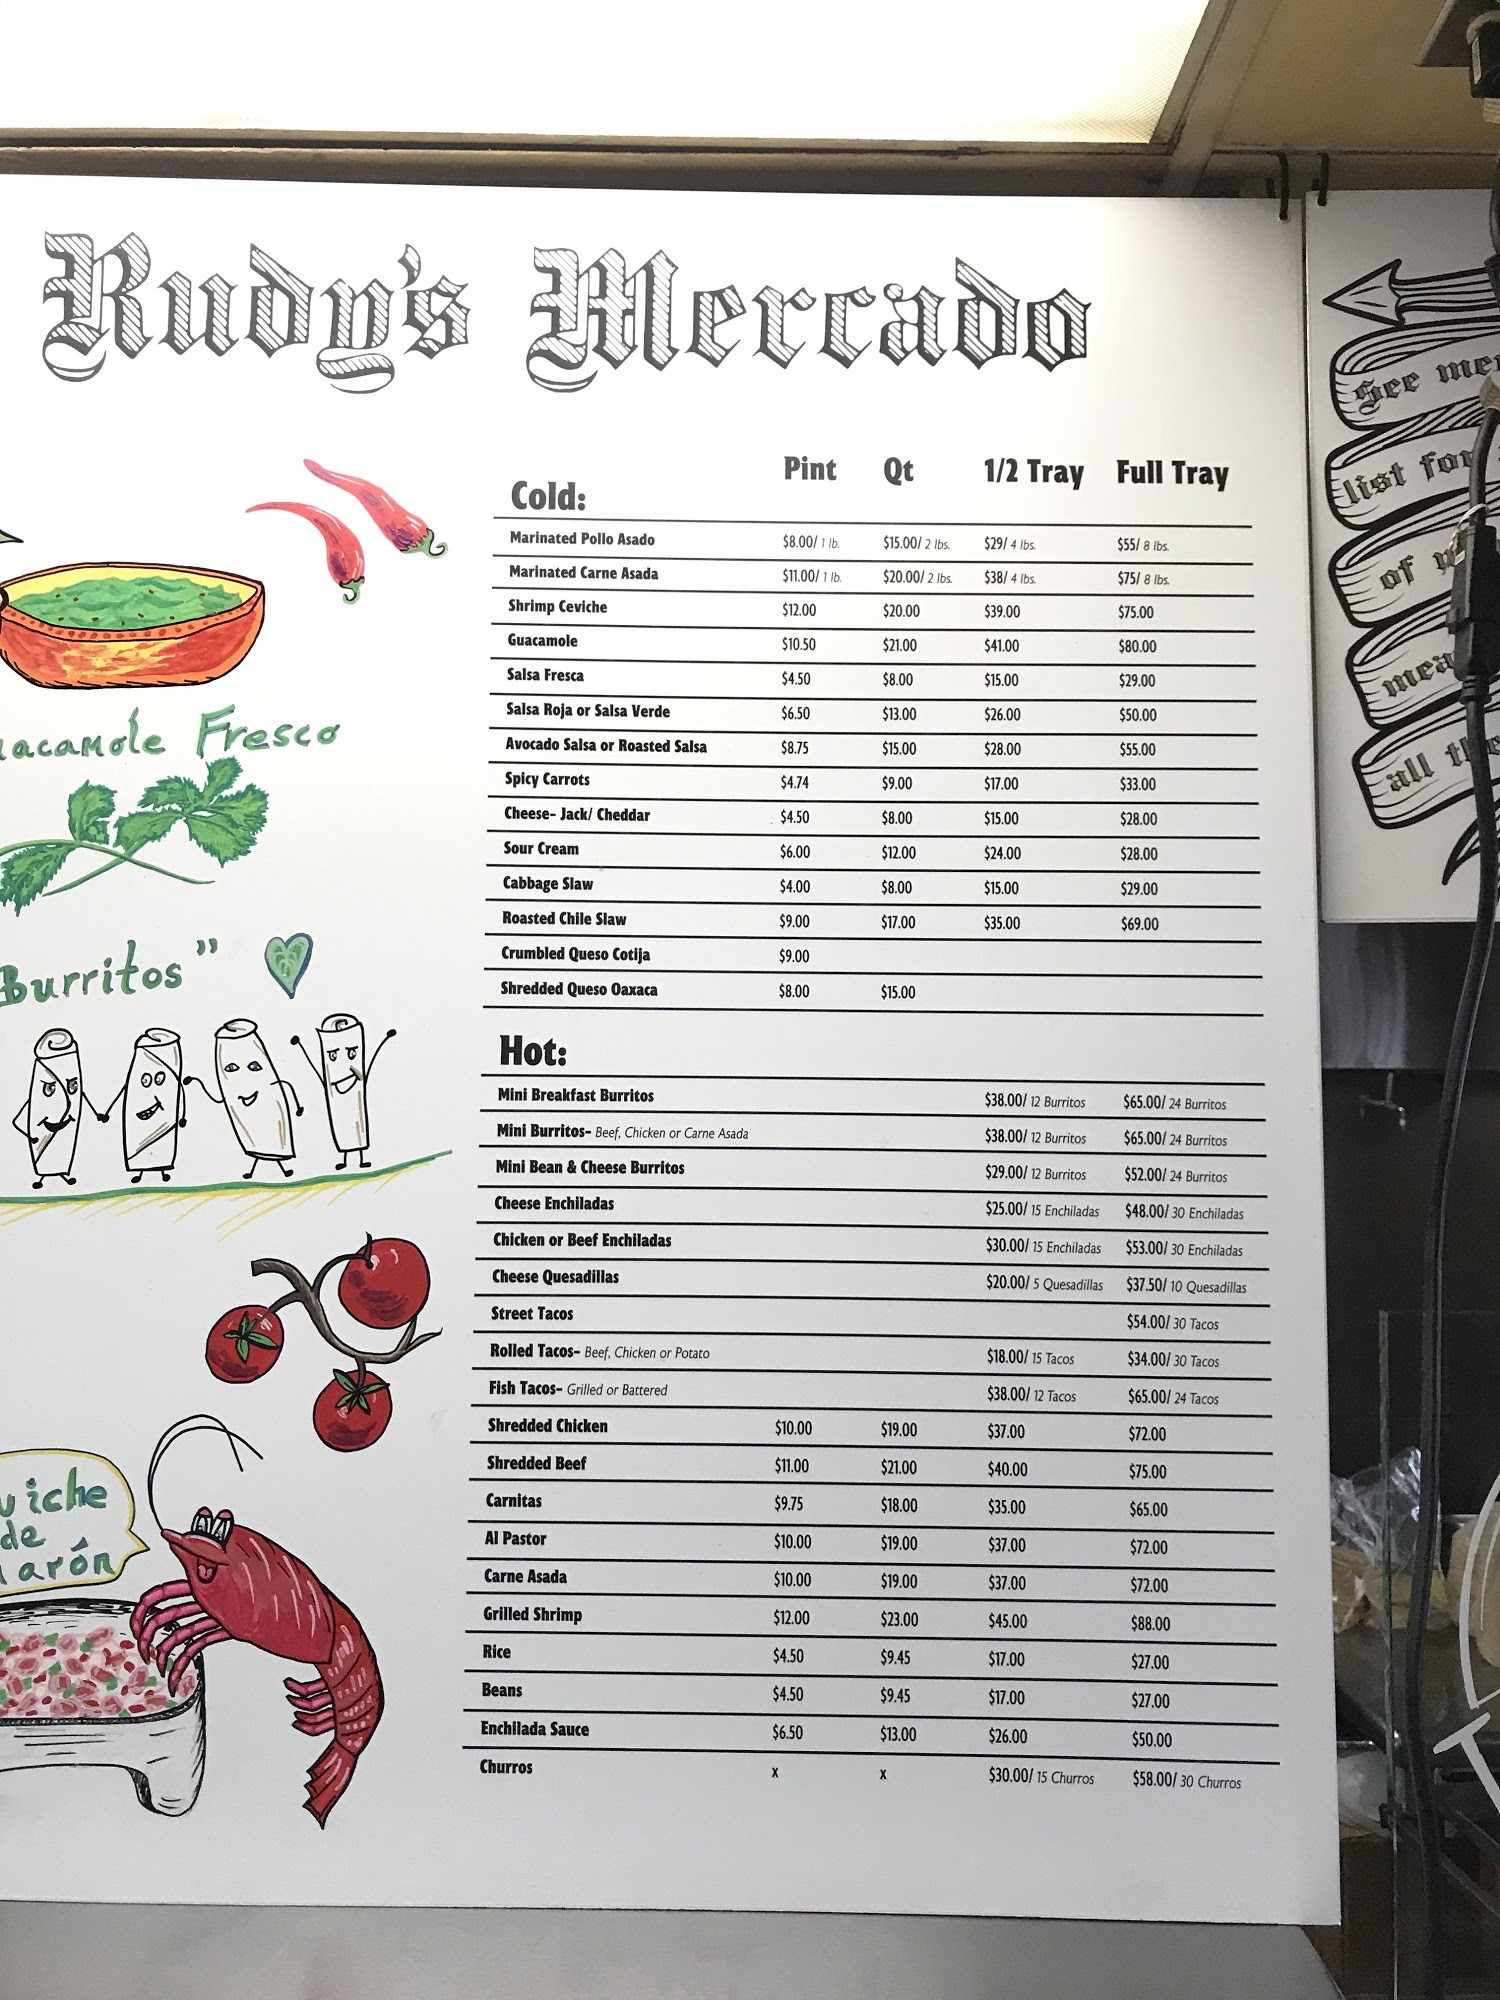 Rudy's Mercado
Pint Qt 1/2 Tray Full Tray
Cold:
Marinated Pollo Asado $8.00/ 1 lb. $15.00/ 2 lbs. $29/ 4 lbs. $55/ 8 lbs.
Marinated Carne Asada $11.00/ 1 lb. $20.00/ 2 lbs. $38/ 4 lbs. $75/ 8 lbs.
Shrimp Ceviche $12.00 $20.00 $39.00 $75.00
Guacamole $10.50 $21.00 $41.00 $80.00
Salsa Fresca $4.50 $8.00 $15.00 $29.00
Salsa Roja or Salsa Verde $6.50 $13.00 $26.00 $50.00
Avocado Salsa or Roasted Salsa $8.75 $15.00 $28.00 $55.00
Spicy Carrots $4.74 $9.00 $17.00 $33.00
Cheese- Jack/ Cheddar $4.50 $8.00 $15.00 $28.00
Sour Cream $6.00 $12.00 $24.00 $28.00
Cabbage Slaw $4.00 $8.00 $15.00 $29.00
Roasted Chile Slaw $9.00 $17.00 $35.00 $69.00
Crumbled Queso Cotija $9.00
Shredded Queso Oaxaca $8.00 $15.00
Hot:
Mini Breakfast Burritos $38.00/ 12 Burritos $65.00/ 24 Burritos
Mini Burritos- Beef, Chicken or Carne Asada $38.00/ 12 Burritos $65.00/ 24 Burritos
Mini Bean & Cheese Burritos $29.00/ 12 Burritos $52.00/ 24 Burritos
Cheese Enchiladas $25.00/ 15 Enchiladas $48.00/ 30 Enchiladas
Chicken or Beef Enchiladas $30.00/ 15 Enchiladas $53.00/ 30 Enchiladas
Cheese Quesadillas $20.00/ 5 Quesadillas $37.50/ 10 Quesadillas
Street Tacos $54.00/ 30 Tacos
Rolled Tacos- Beef, Chicken or Potato $18.00/ 15 Tacos $34.00/ 30 Tacos
Fish Tacos- Grilled or Battered $38.00/ 12 Tacos $65.00/ 24 Tacos
Shredded Chicken $10.00 $19.00 $37.00 $72.00
Shredded Beef $11.00 $21.00 $40.00 $75.00
Carnitas $9.75 $18.00 $35.00 $65.00
Al Pastor $10.00 $19.00 $37.00 $72.00
Carne Asada $10.00 $19.00 $37.00 $72.00
Grilled Shrimp $12.00 $23.00 $45.00 $88.00
Rice $4.50 $9.45 $17.00 $27.00
Beans $4.50 $9.45 $17.00 $27.00
Enchilada Sauce $6.50 $13.00 $26.00 $50.00
Churros x x $30.00/ 15 Churros $58.00/ 30 Churros
uacamole Fresco
Burritos"
uiche
de
arón
See
list for
of
all